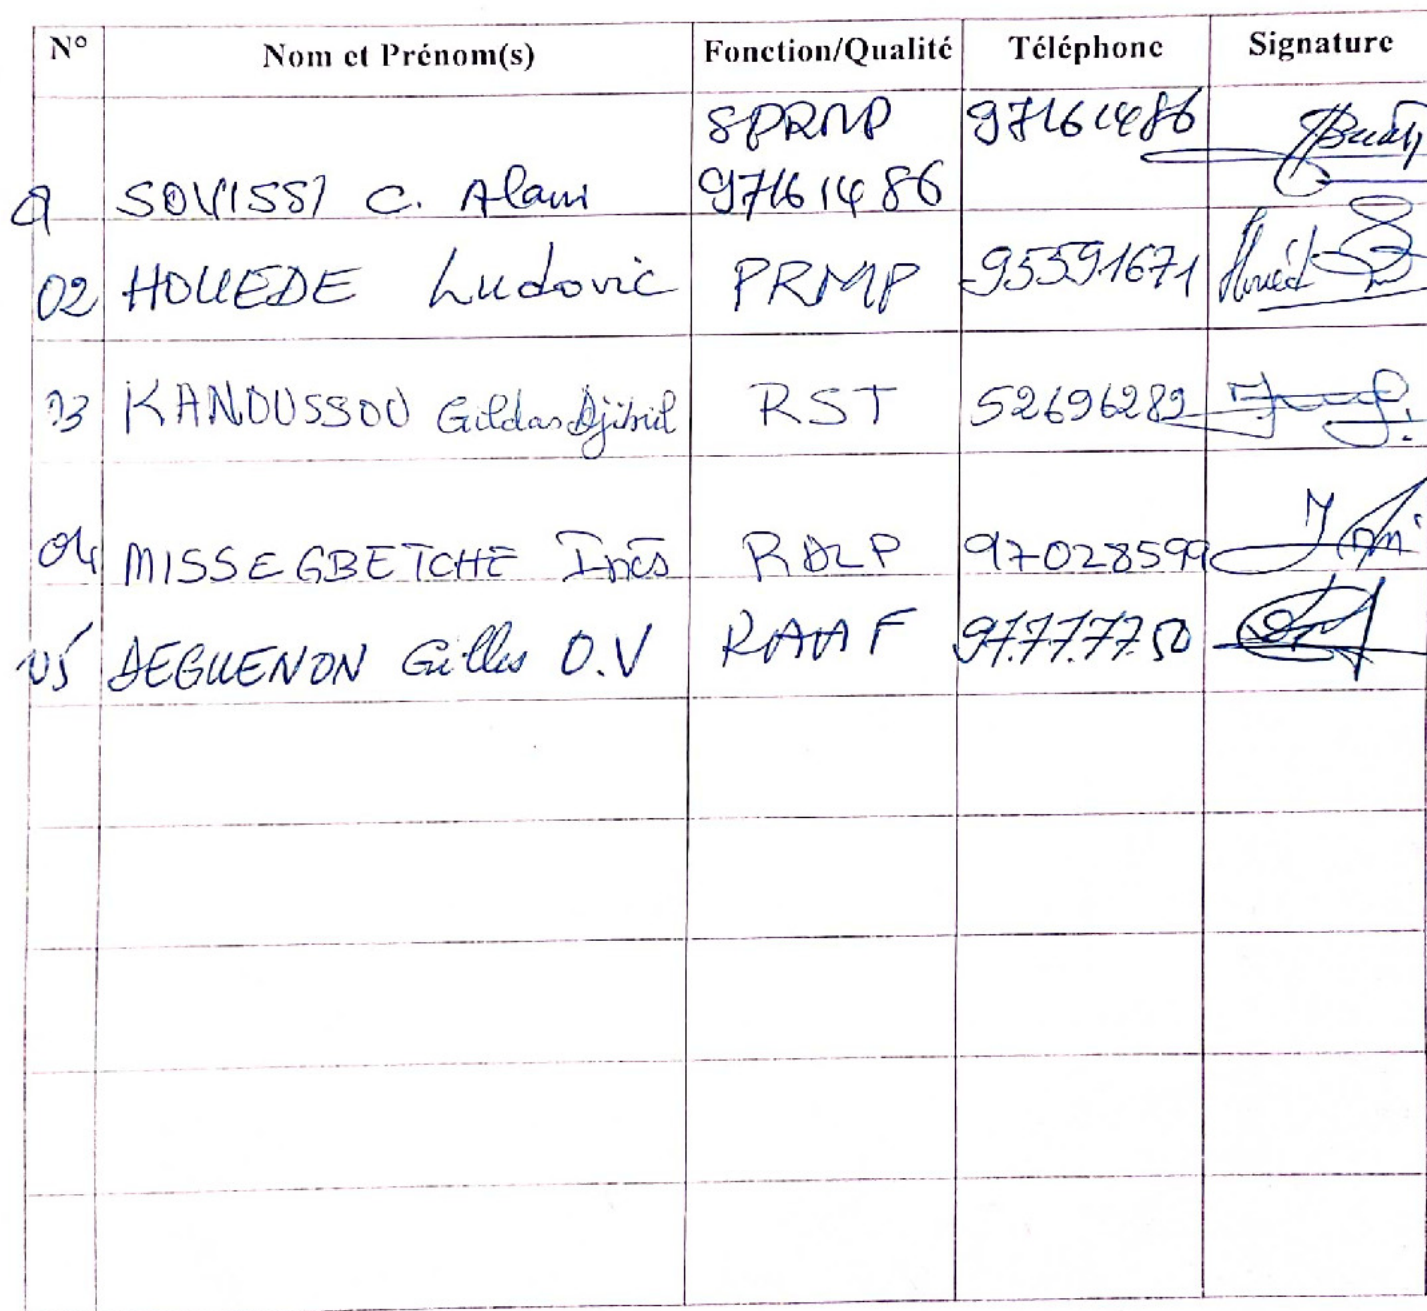 N° Nom et Prénom(s) Fonction/Qualité Téléphone Signature
SPRMP 97161486
SOVISSI C. Alain 97161486
02 HOUEDE Ludovic PRMP 95591671
03 KANOUSSOU Gildas Djibril RST 52696289
04 MISSEGBETCHE Inès RALP 97028599
05 DEGUENON Gilles O.V RAAF 97.77.77.50